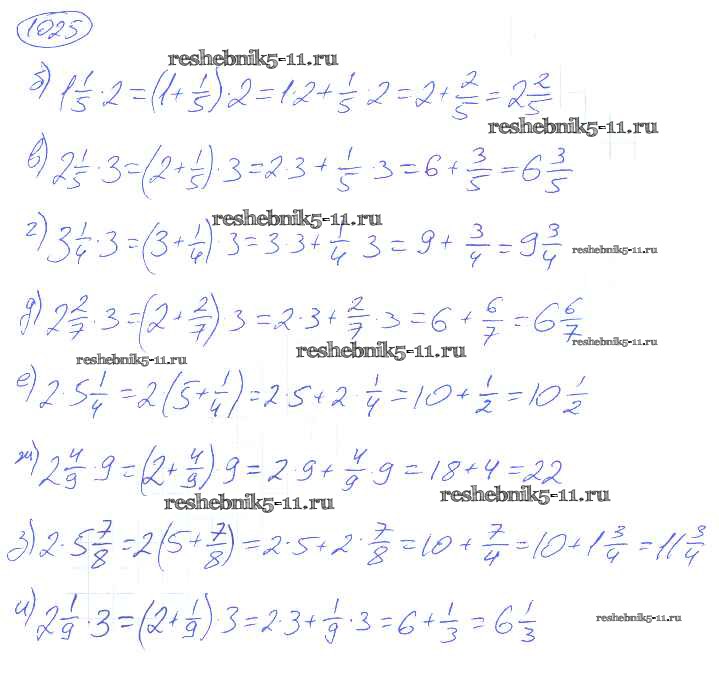 1025
reshebnik5-11.ru
б) 1 1/5 · 2 = (1 + 1/5) · 2 = 1 · 2 + 1/5 · 2 = 2 + 2/5 = 2 2/5
reshebnik5-11.ru
в) 2 1/5 · 3 = (2 + 1/5) · 3 = 2 · 3 + 1/5 · 3 = 6 + 3/5 = 6 3/5
reshebnik5-11.ru
г) 3 1/4 · 3 = (3 + 1/4) · 3 = 3 · 3 + 1/4 · 3 = 9 + 3/4 = 9 3/4
reshebnik5-11.ru
д) 2 2/7 · 3 = (2 + 2/7) · 3 = 2 · 3 + 2/7 · 3 = 6 + 6/7 = 6 6/7
reshebnik5-11.ru
reshebnik5-11.ru
reshebnik5-11.ru
е) 2 · 5 1/4 = 2 (5 + 1/4) = 2 · 5 + 2 · 1/4 = 10 + 1/2 = 10 1/2
ж) 2 4/9 · 9 = (2 + 4/9) 9 = 2 · 9 + 4/9 · 9 = 18 + 4 = 22
reshebnik5-11.ru
reshebnik5-11.ru
з) 2 · 5 7/8 = 2 (5 + 7/8) = 2 · 5 + 2 · 7/8 = 10 + 7/4 = 10 + 1 3/4 = 11 3/4
и) 2 1/9 · 3 = (2 + 1/9) · 3 = 2 · 3 + 1/9 · 3 = 6 + 1/3 = 6 1/3
reshebnik5-11.ru